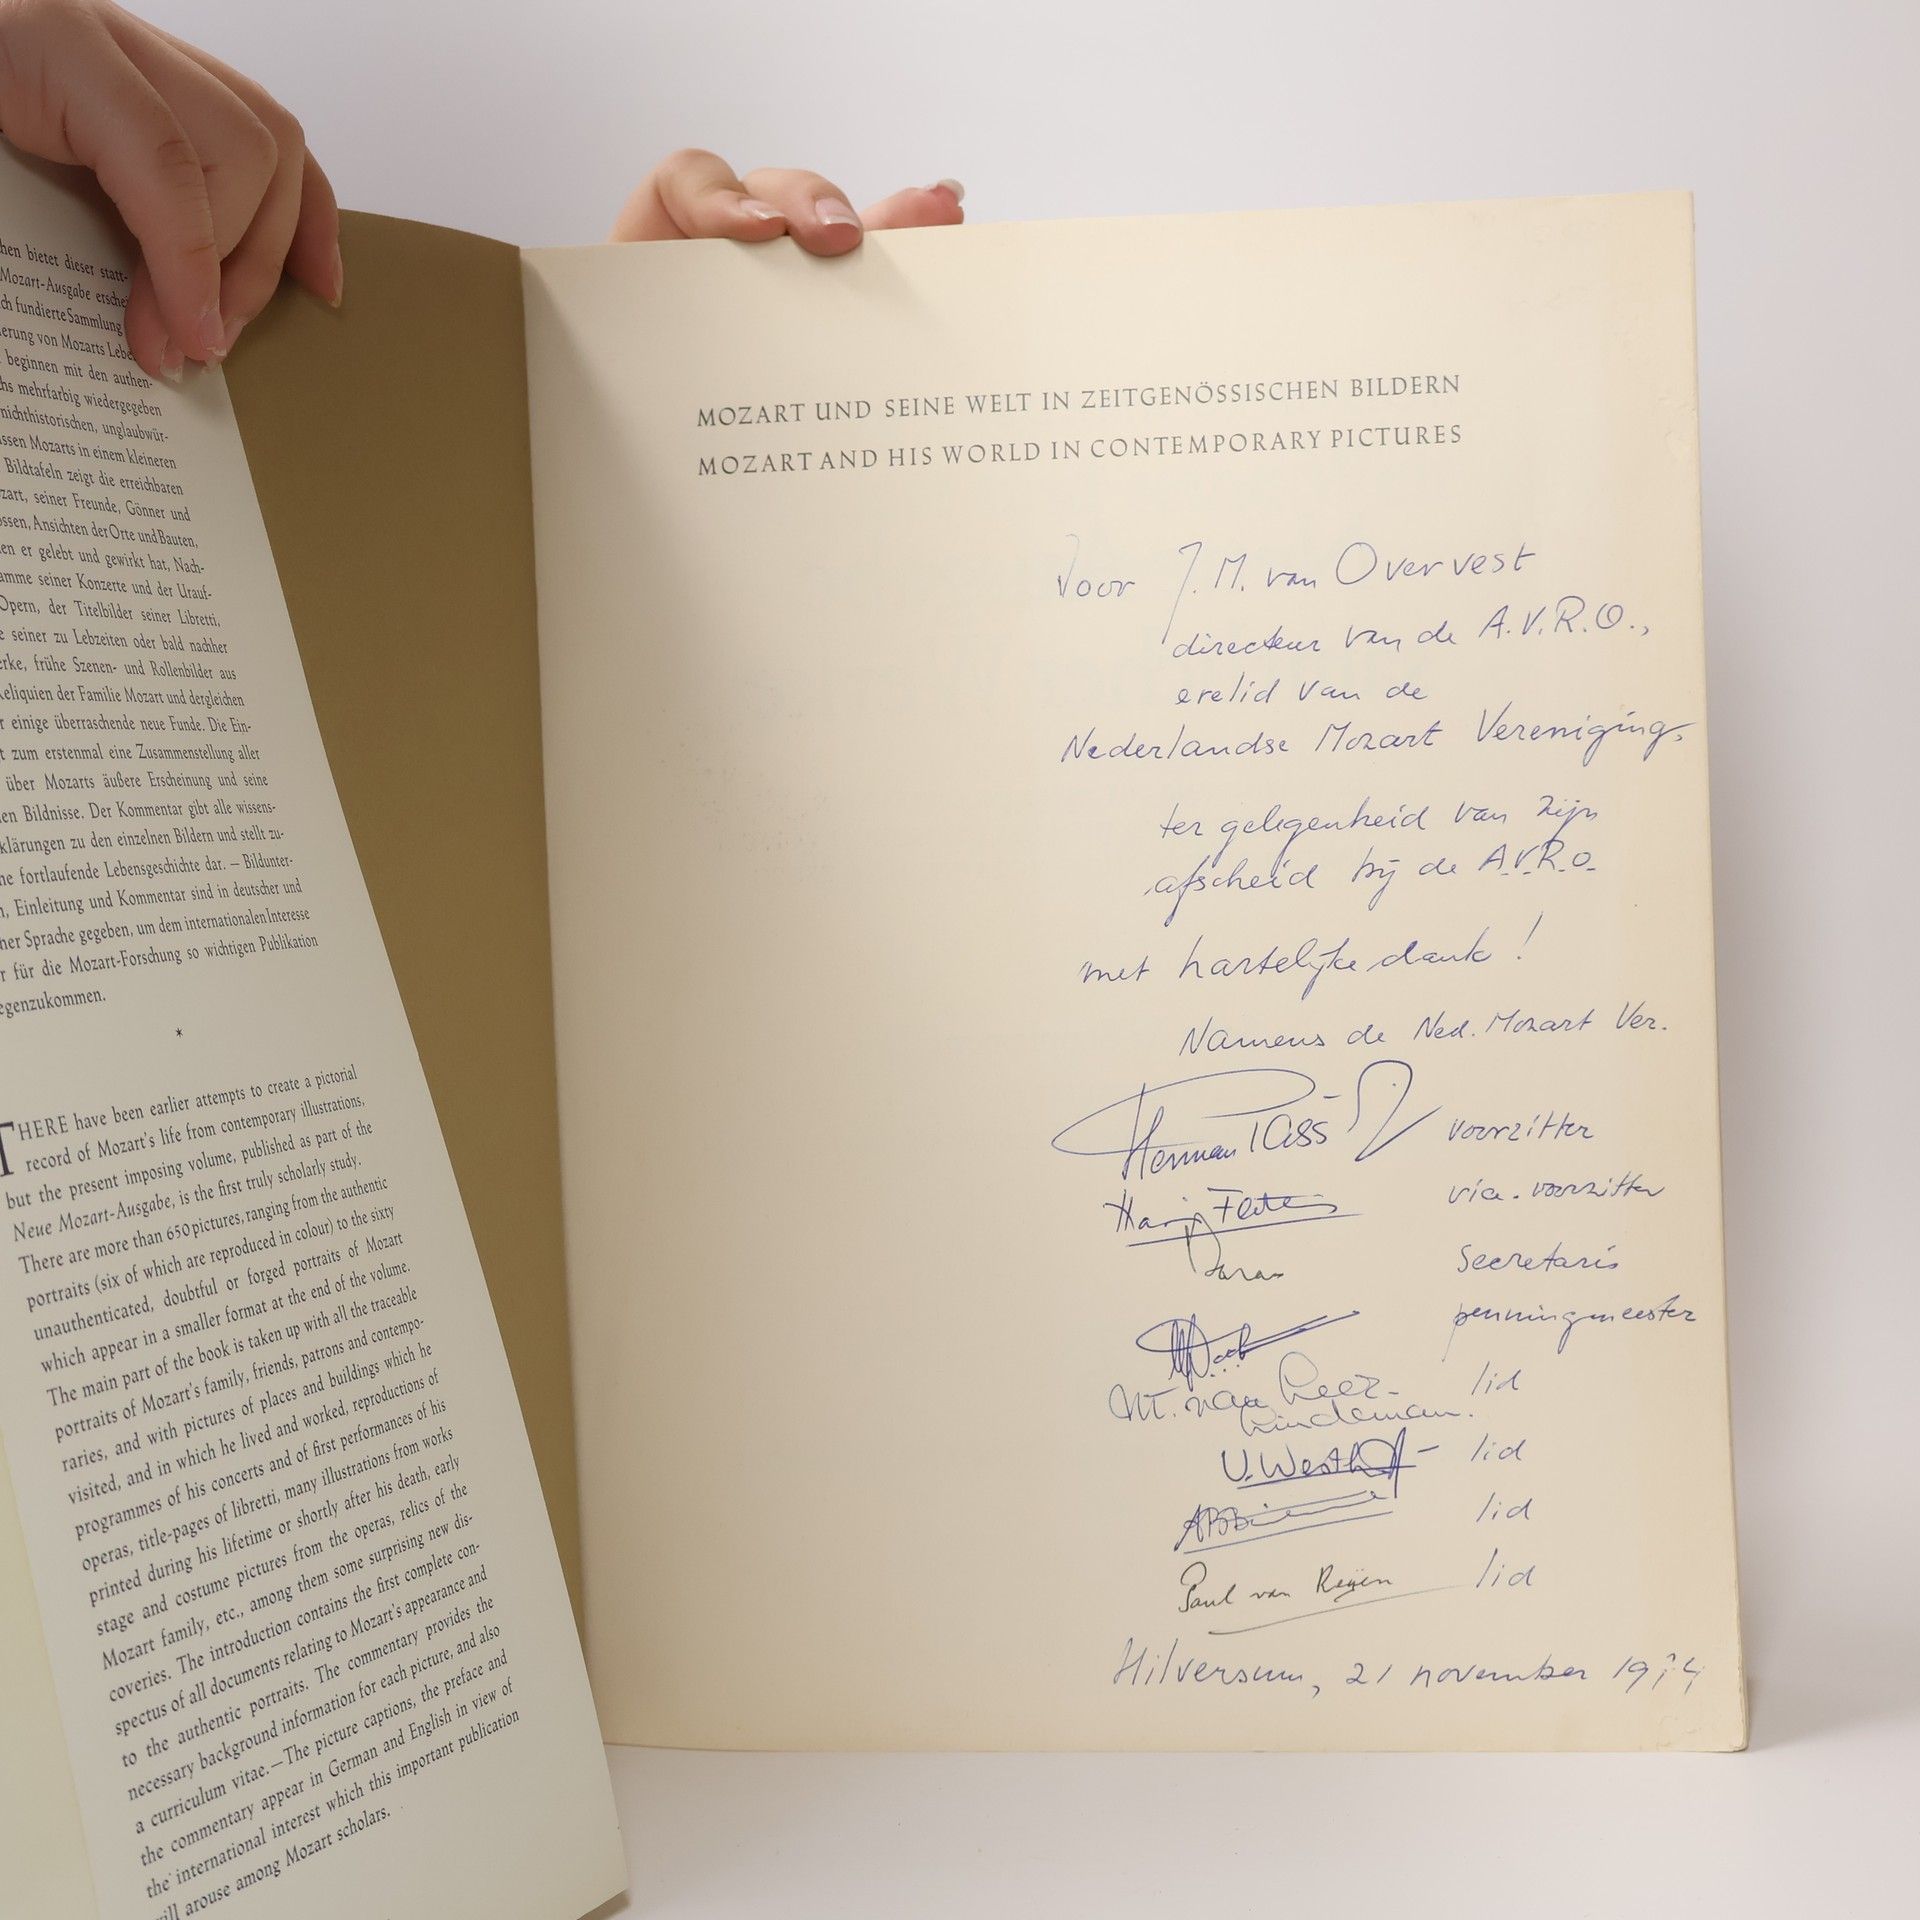 hen bietet dieser statt-
Mozart-Ausgabe erschei
ch fundierte Sammlung
erung von Mozarts Lebe
beginnen mit den authen-
hs mehrfarbig wiedergegeben
nichthistorischen, unglaubwür-
ssen Mozarts in einem kleineren
Bildtafeln zeigt die erreichbaren
zart, seiner Freunde, Gönner und
ossen, Ansichten der Orte und Bauten,
en er gelebt und gewirkt hat, Nach-
amme seiner Konzerte und der Urauf-
Opern, der Titelbilder seiner Libretti,
e seiner zu Lebzeiten oder bald nachher
erke, frühe Szenen- und Rollenbilder aus
Reliquien der Familie Mozart und dergleichen
r einige überraschende neue Funde. Die Ein-
t zum erstenmal eine Zusammenstellung aller
über Mozarts äußere Erscheinung und seine
en Bildnisse. Der Kommentar gibt alle wissens-
klärungen zu den einzelnen Bildern und stellt zu-
ne fortlaufende Lebensgeschichte dar. — Bildunter-
n, Einleitung und Kommentar sind in deutscher und
her Sprache gegeben, um dem internationalen Interesse
r für die Mozart-Forschung so wichtigen Publikation
egenzukommen.
*
THERE have been earlier attempts to create a pictorial
record of Mozart's life from contemporary illustrations,
but the present imposing volume, published as part of the
Neue Mozart-Ausgabe, is the first truly scholarly study.
There are more than 650 pictures, ranging from the authentic
portraits (six of which are reproduced in colour) to the sixty
unauthenticated, doubtful or forged portraits of Mozart
which appear in a smaller format at the end of the volume.
The main part of the book is taken up with all the traceable
portraits of Mozart's family, friends, patrons and contempo-
raries, and with pictures of places and buildings which he
visited, and in which he lived and worked, reproductions of
programmes of his concerts and of first performances of his
operas, title-pages of libretti, many illustrations from works
printed during his lifetime or shortly after his death, early
stage and costume pictures from the operas, relics of the
Mozart family, etc., among them some surprising new dis-
coveries. The introduction contains the first complete con-
spectus of all documents relating to Mozart's appearance and
to the authentic portraits. The commentary provides the
necessary background information for each picture, and also
a curriculum vitae.—The picture captions, the preface and
the commentary appear in German and English in view of
the international interest which this important publication
will arouse among Mozart scholars.
MOZART UND SEINE WELT IN ZEITGENÖSSISCHEN BILDERN
MOZART AND HIS WORLD IN CONTEMPORARY PICTURES
Voor J. M. van Overvest
directeur van de A.V.R.O.,
erelid van de
Nederlandse Mozart Vereniging,
ter gelegenheid van zijn
afscheid bij de A.V.R.O.
met hartelijke dank!
Namens de Ned. Mozart Ver.
Herman voorzitter
vice-voorzitter
secretaris
penningmeester
van Leer- lid
Lindeman.
U. Westh lid
lid
Paul van Reijen lid
Hilversum, 21 november 1974